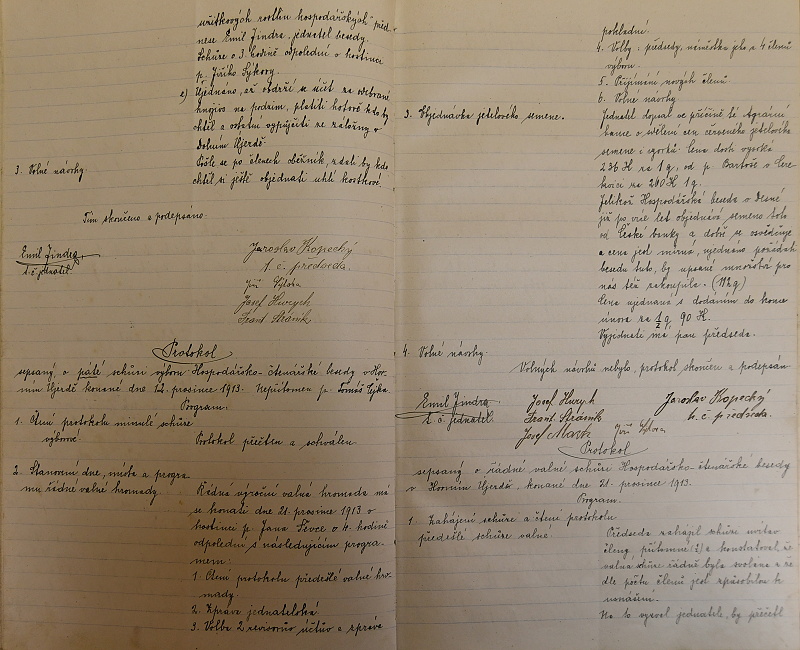 užitkových rostlin hospodářských" před-
nese Emil Jindra, jednatel besedy.
Schůze o 3. hodině odpolední v hostinci
p. Jiřího Sýkory.
2) Ujednáno, až obdrží se účet za odebraný
na podzim, platiti hotově kdo by
chtěl a ostatní vypůjčiti ze záložny v
Dolním Újezdě.
3. Volné návrhy.
Pošle se po členech oběžník, zdali by kdo
chtěl si ještě objednati uhlí kostkové.
Tím skončeno a podepsáno:
Emil Jindra
t. č. jednatel.
Jaroslav Kopecký
t. č. předseda.
Jiří Sýkora
Josef
Frant. Stránik
Protokol
sepsaný o páté schůzi výboru Hospodářsko-čtenářské besedy v Hor-
ním Újezdě konané dne 12. prosince 1913. Nepřítomen p. Tomáš
Program.
1. Čtení protokolu minulé schůze
výborové.
Protokol přečten a schválen.
2. Stanovení dne, místa a progra-
mu řádné valné hromady.
Řádná výroční valná hromada má
se konati dne 21. prosince 1913 v
hostinci p. Jana Ševce o 4. hodině
odpolední s následujícím progra-
mem:
1. Čtení protokolu předešlé valné hro-
mady.
2. Zpráva jednatelská
3. Volba 2 revisorův účtův a zpráva
pokladní.
4. Volby: předsedy, náměstka jeho a 4 členů
výboru.
5. Přijímání nových členů
6. Volné návrhy
3. Objednávka jetelového semene.
Jednatel dopsal ve příčině té Agrární
bance o sdělení cen červeného jetelového
semene i Cena dosti vysoká
236 K za 1 q, od p. Bartoše v Cere-
kvici za 240 K 1 q.
Jelikož Hospodářská beseda v Desné
již po více let objednává semeno toto
od České banky a dobře se osvědčuje
a cena jest mírná, ujednáno požádati
besedu tuto, by upsané množství pro
nás též zakoupila. (1½ q)
Cena ujednaná s dodáním do konce
února za ½ q 90 K.
Vyjednati má pan předseda.
4. Volné návrhy.
Volných návrhů nebylo, protokol skončen a podepsán
Emil Jindra
t. č. jednatel.
Josef
Frant. Stránik
Josef
Jiří Sýkora
Jaroslav Kopecký
t. č. předseda.
Protokol
sepsaný o řádné valné schůzi Hospodářsko-čtenářské besedy
v Horním Újezdě, konané dne 21. prosince 1913.
Program.
1. Zahájení schůze a čtení protokolu
předešlé schůze valné.
Předseda zahájil schůzi uvítav
členy přítomné a konstatoval, že
valná schůze řádně byla svolána a že
dle počtu členů jest způsobilou k
usnášení.
Na to vyzval jednatele, by přečetl